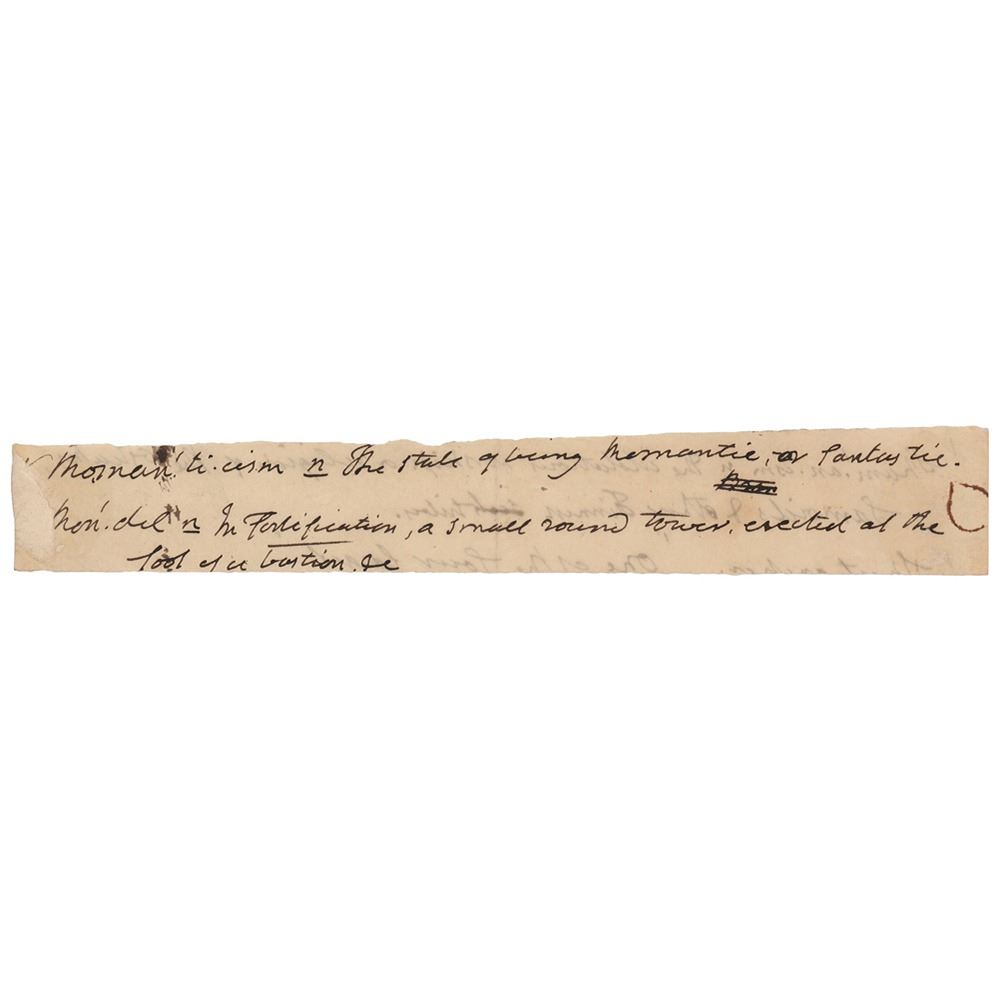 Roman'ti.cism n The state of being Romantic, or fantastic.
Ron'.del n In Fortification, a small round tower, erected at the
foot of a bastion. &c